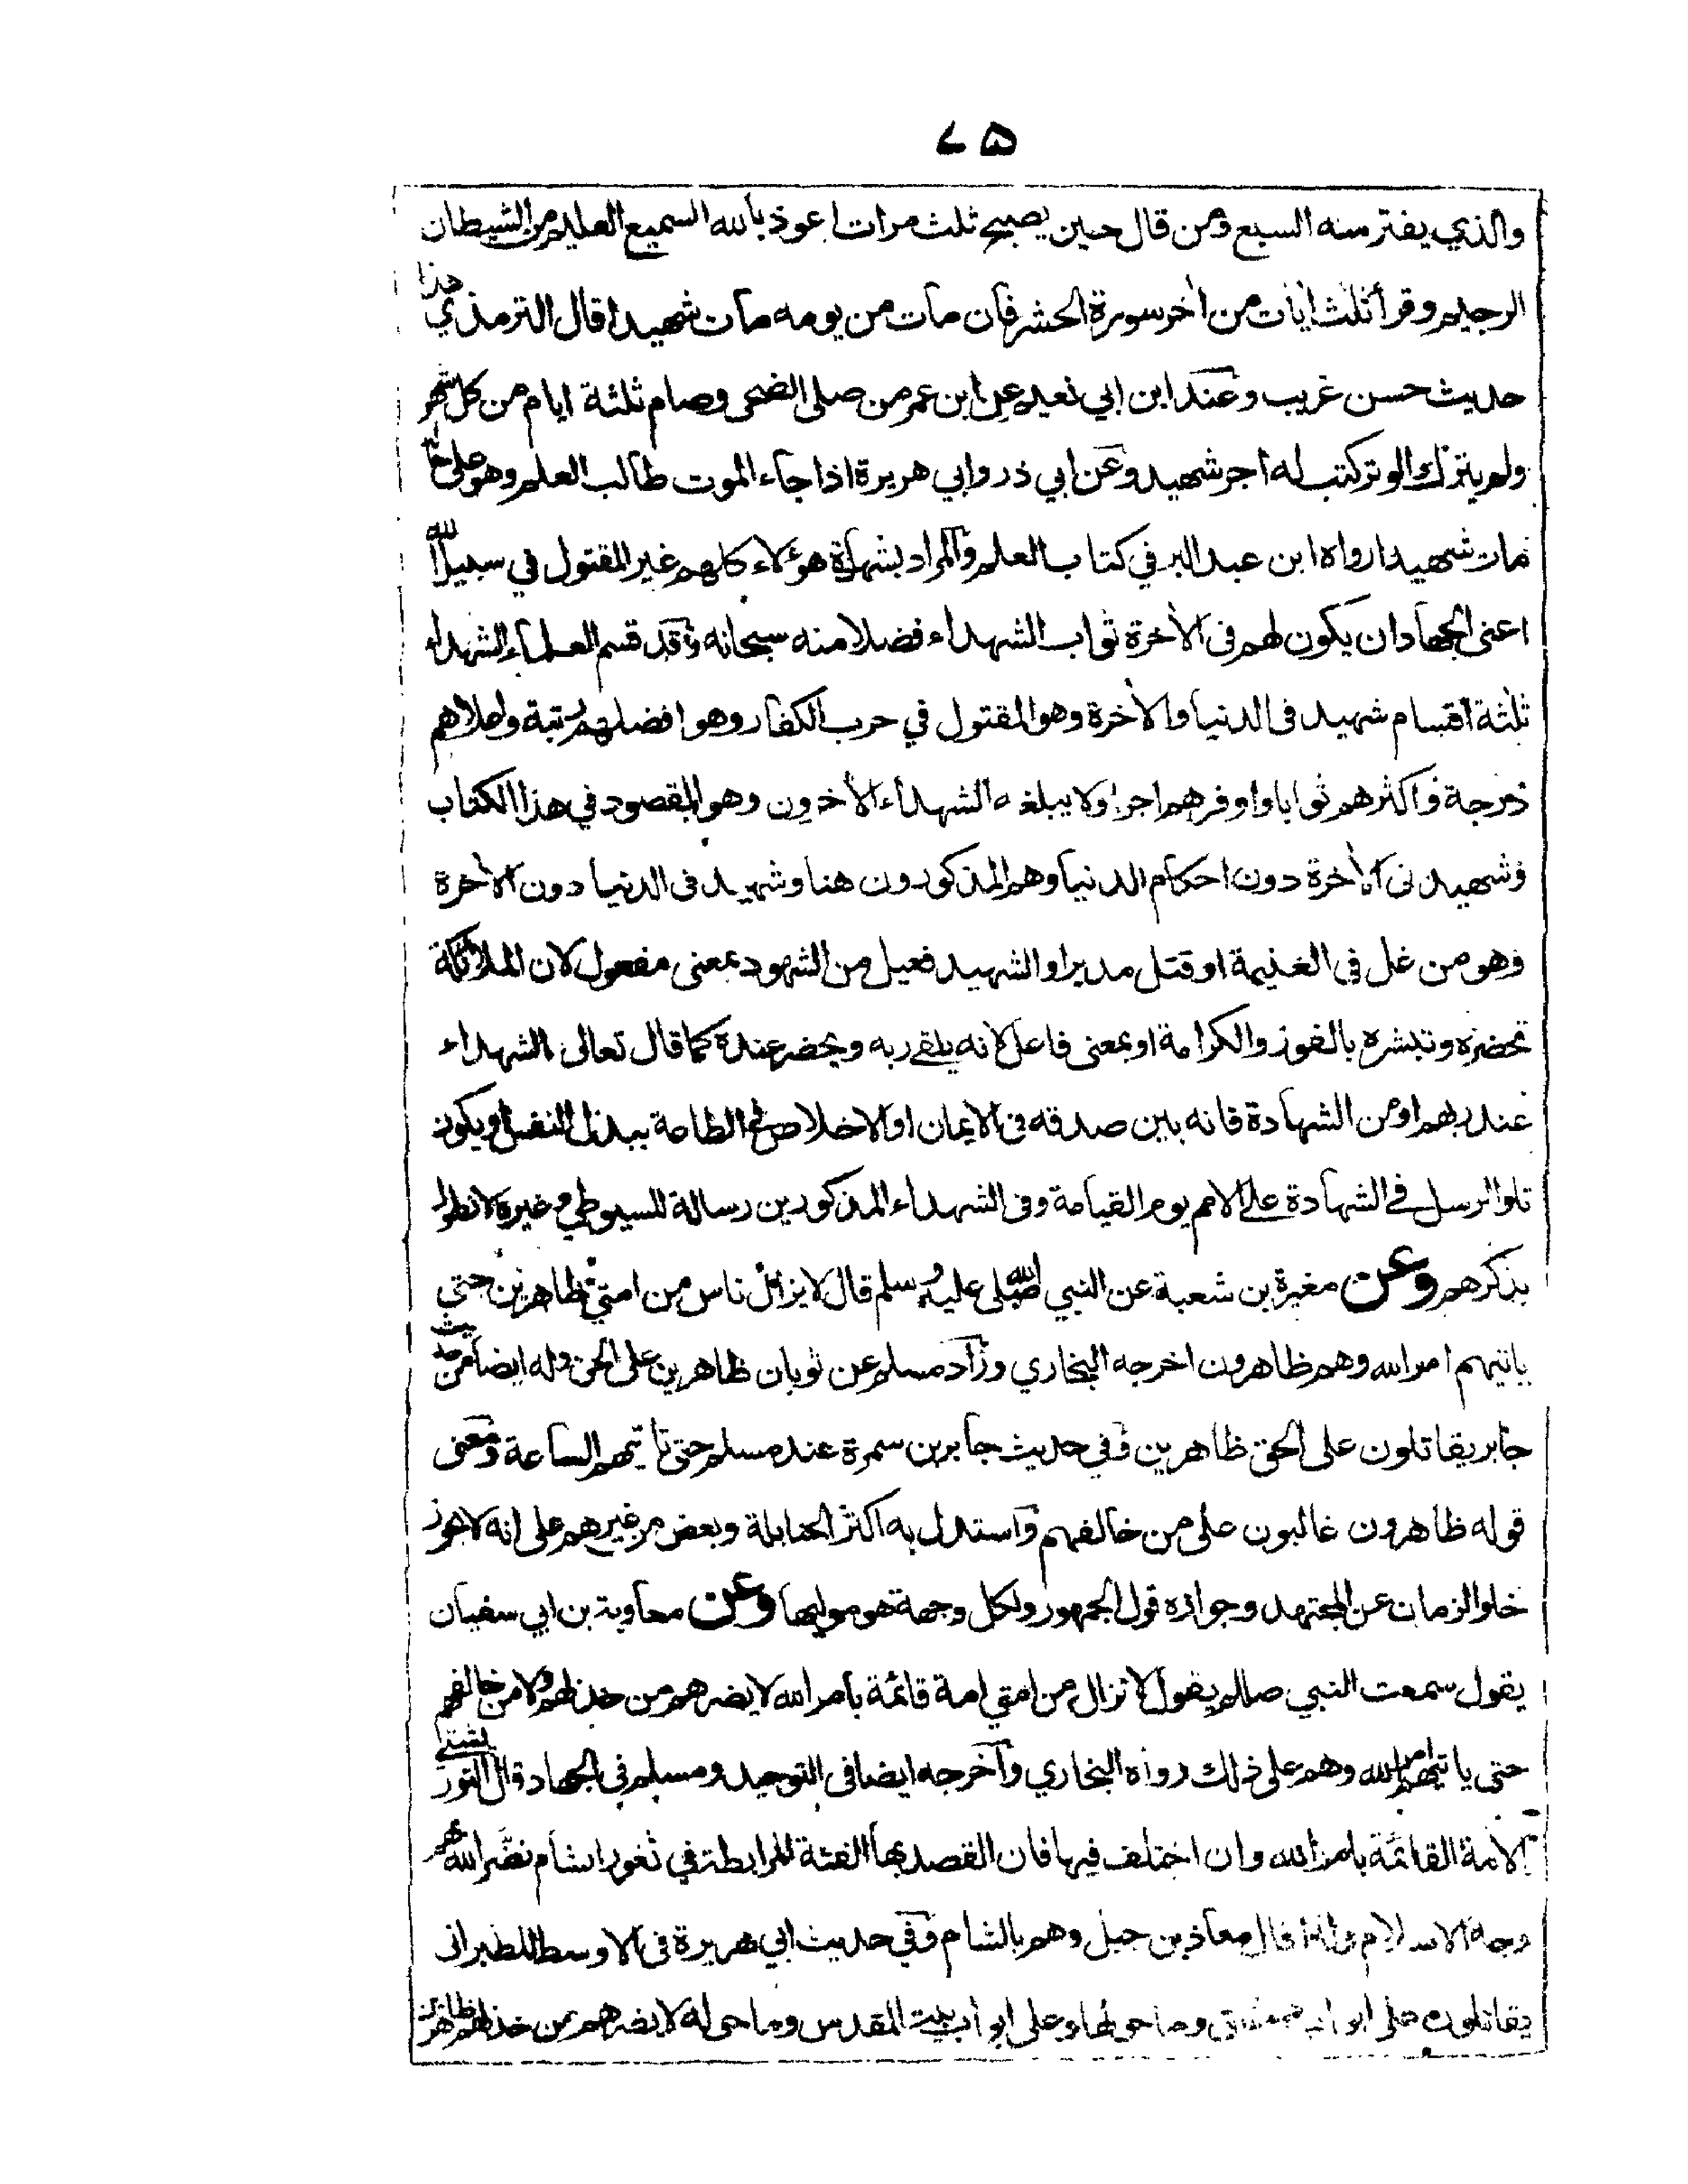 ٧٥
والذي يفترسه السبع ومن قال حين يصبح ثلث مرات اعوذ بالله السميع العليم من الشيطان
الرجيم وقرأ ثلث أيات من أخر سورة الحشر فان مات من يومه مات شهيدا قال الترمذي هذا
حديث حسن غريب وعند ابن ابي نعيم عن ابن عمر من صلى الضحى وصام ثلثة ايام من كل شهر
ولم يترك الوتر كتب له اجر شهيد وعن ابي ذر وابي هريرة اذا جاء الموت طالب العلم وهو على
مات شهيدا رواه ابن عبد البر في كتاب العلم والمراد بشهادة هؤلاء كلهم غير المقتول في سبيل الله
اعنى الجهاد ان يكون لهم فى الأخرة ثواب الشهداء فضلا منه سبحانه وقد قسم العلماء الشهداء
ثلثة اقسام شهيد فى الدنيا والأخرة وهو المقتول في حرب الكفار وهو افضلهم رتبة واعلاهم
درجة واكثرهم ثوابا واوفرهم اجرا ولا يبلغه الشهداء الأخرون وهو المقصود في هذا الكتاب
وشهيد فى الأخرة دون احكام الدنيا وهم المذكورون هنا وشهيد فى الدنيا دون الأخرة
وهو من غل فى الغنيمة او قتل مدبرا والشهيد فعيل من الشهود بمعنى مفعول لان الملائكة
تحضره وتبشره بالفوز والكرامة او بمعنى فاعل لانه يلقى ربه ويحضر عنده كما قال تعالى الشهداء
عند ربهم او من الشهادة فانه بين صدقه فى الايمان او الاخلاص فى الطاعة ببذل النفس او يكون
تلو الرسل في الشهادة على الامم يوم القيامة وفى الشهداء المذكورين رسالة للسيوطي وغيره لا نطول
بذكرهم وعن مغيرة بن شعبة عن النبي صلى الله عليه وسلم قال لا يزال ناس من امتي ظاهرين حتى
ياتيهم امر الله وهم ظاهرون اخرجه البخاري وزاد مسلم عن ثوبان ظاهرين على الحق وله ايضا من حديث
جابر يقاتلون على الحق ظاهرين وفي حديث جابر بن سمرة عند مسلم حتى تاتيهم الساعة ومعنى
قوله ظاهرون غالبون على من خالفهم واستدل به اكثر الحنابلة وبعض من غيرهم على انه لا يجوز
خلو الزمان عن المجتهد وجوازه قول الجمهور ولكل وجهة هو موليها وعن معاوية بن ابي سفيان
يقول سمعت النبي صللم يقول لا تزال من امتي امة قائمة بامر الله لا يضرهم من خذلهم ولا من خالفهم
حتى ياتيهم امر الله وهم على ذلك رواه البخاري وأخرجه ايضا فى التوحيد ومسلم فى الجهاد قال التوربشتي
الامة القائمة بامر الله وان اختلف فيها فان القصد بها الفئة المرابطة في ثغور الشام نضر الله بهم
وجه الاسلام ولذا قال معاذ بن جبل وهم بالشام وفي حديث ابي هريرة فى الاوسط للطبرانى
يقاتلون على ابواب دمشق وما حولها وعلى ابواب بيت المقدس وما حوله لا يضرهم من خذلهم ظاهرين